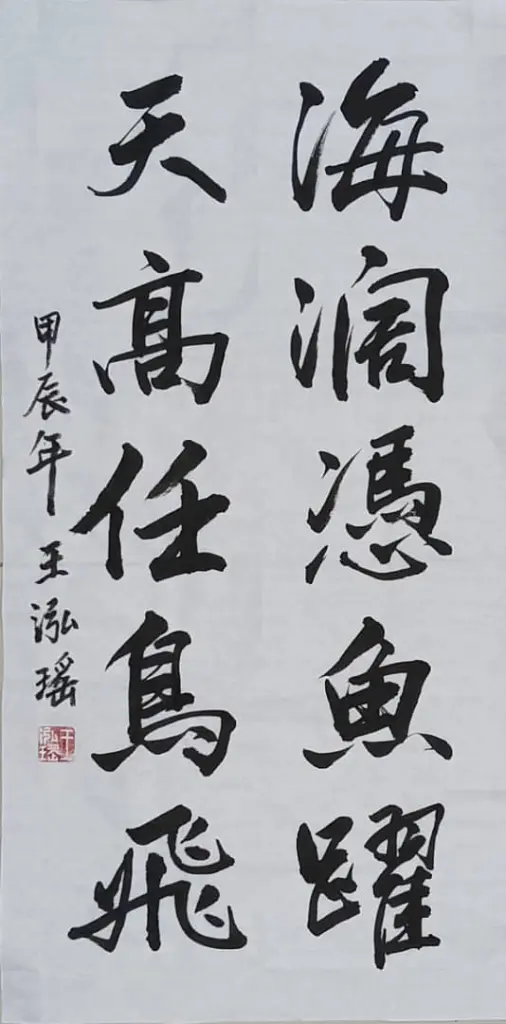 海闊憑魚躍
天高任鳥飛
甲辰年 王泓瑶